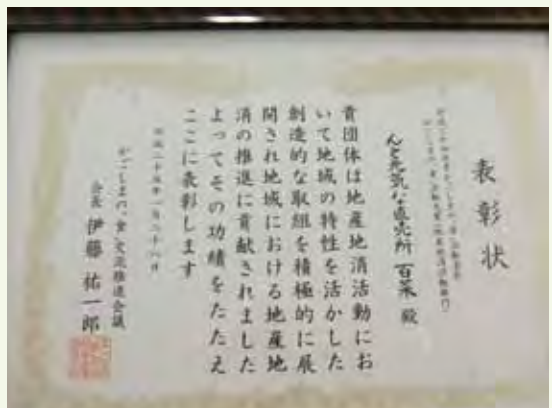 表彰状
元気な直売所 百菜 殿
貴団体は地産地消活動にお
いて地域の特性を活かした
創造的な取組を積極的に展
開され地域における地産地
消の推進に貢献されました
よってその功績をたたえ
ここに表彰します
平成二十五年一月二十八日
かごしまの「食」交流推進会議
会長 伊藤祐一郎